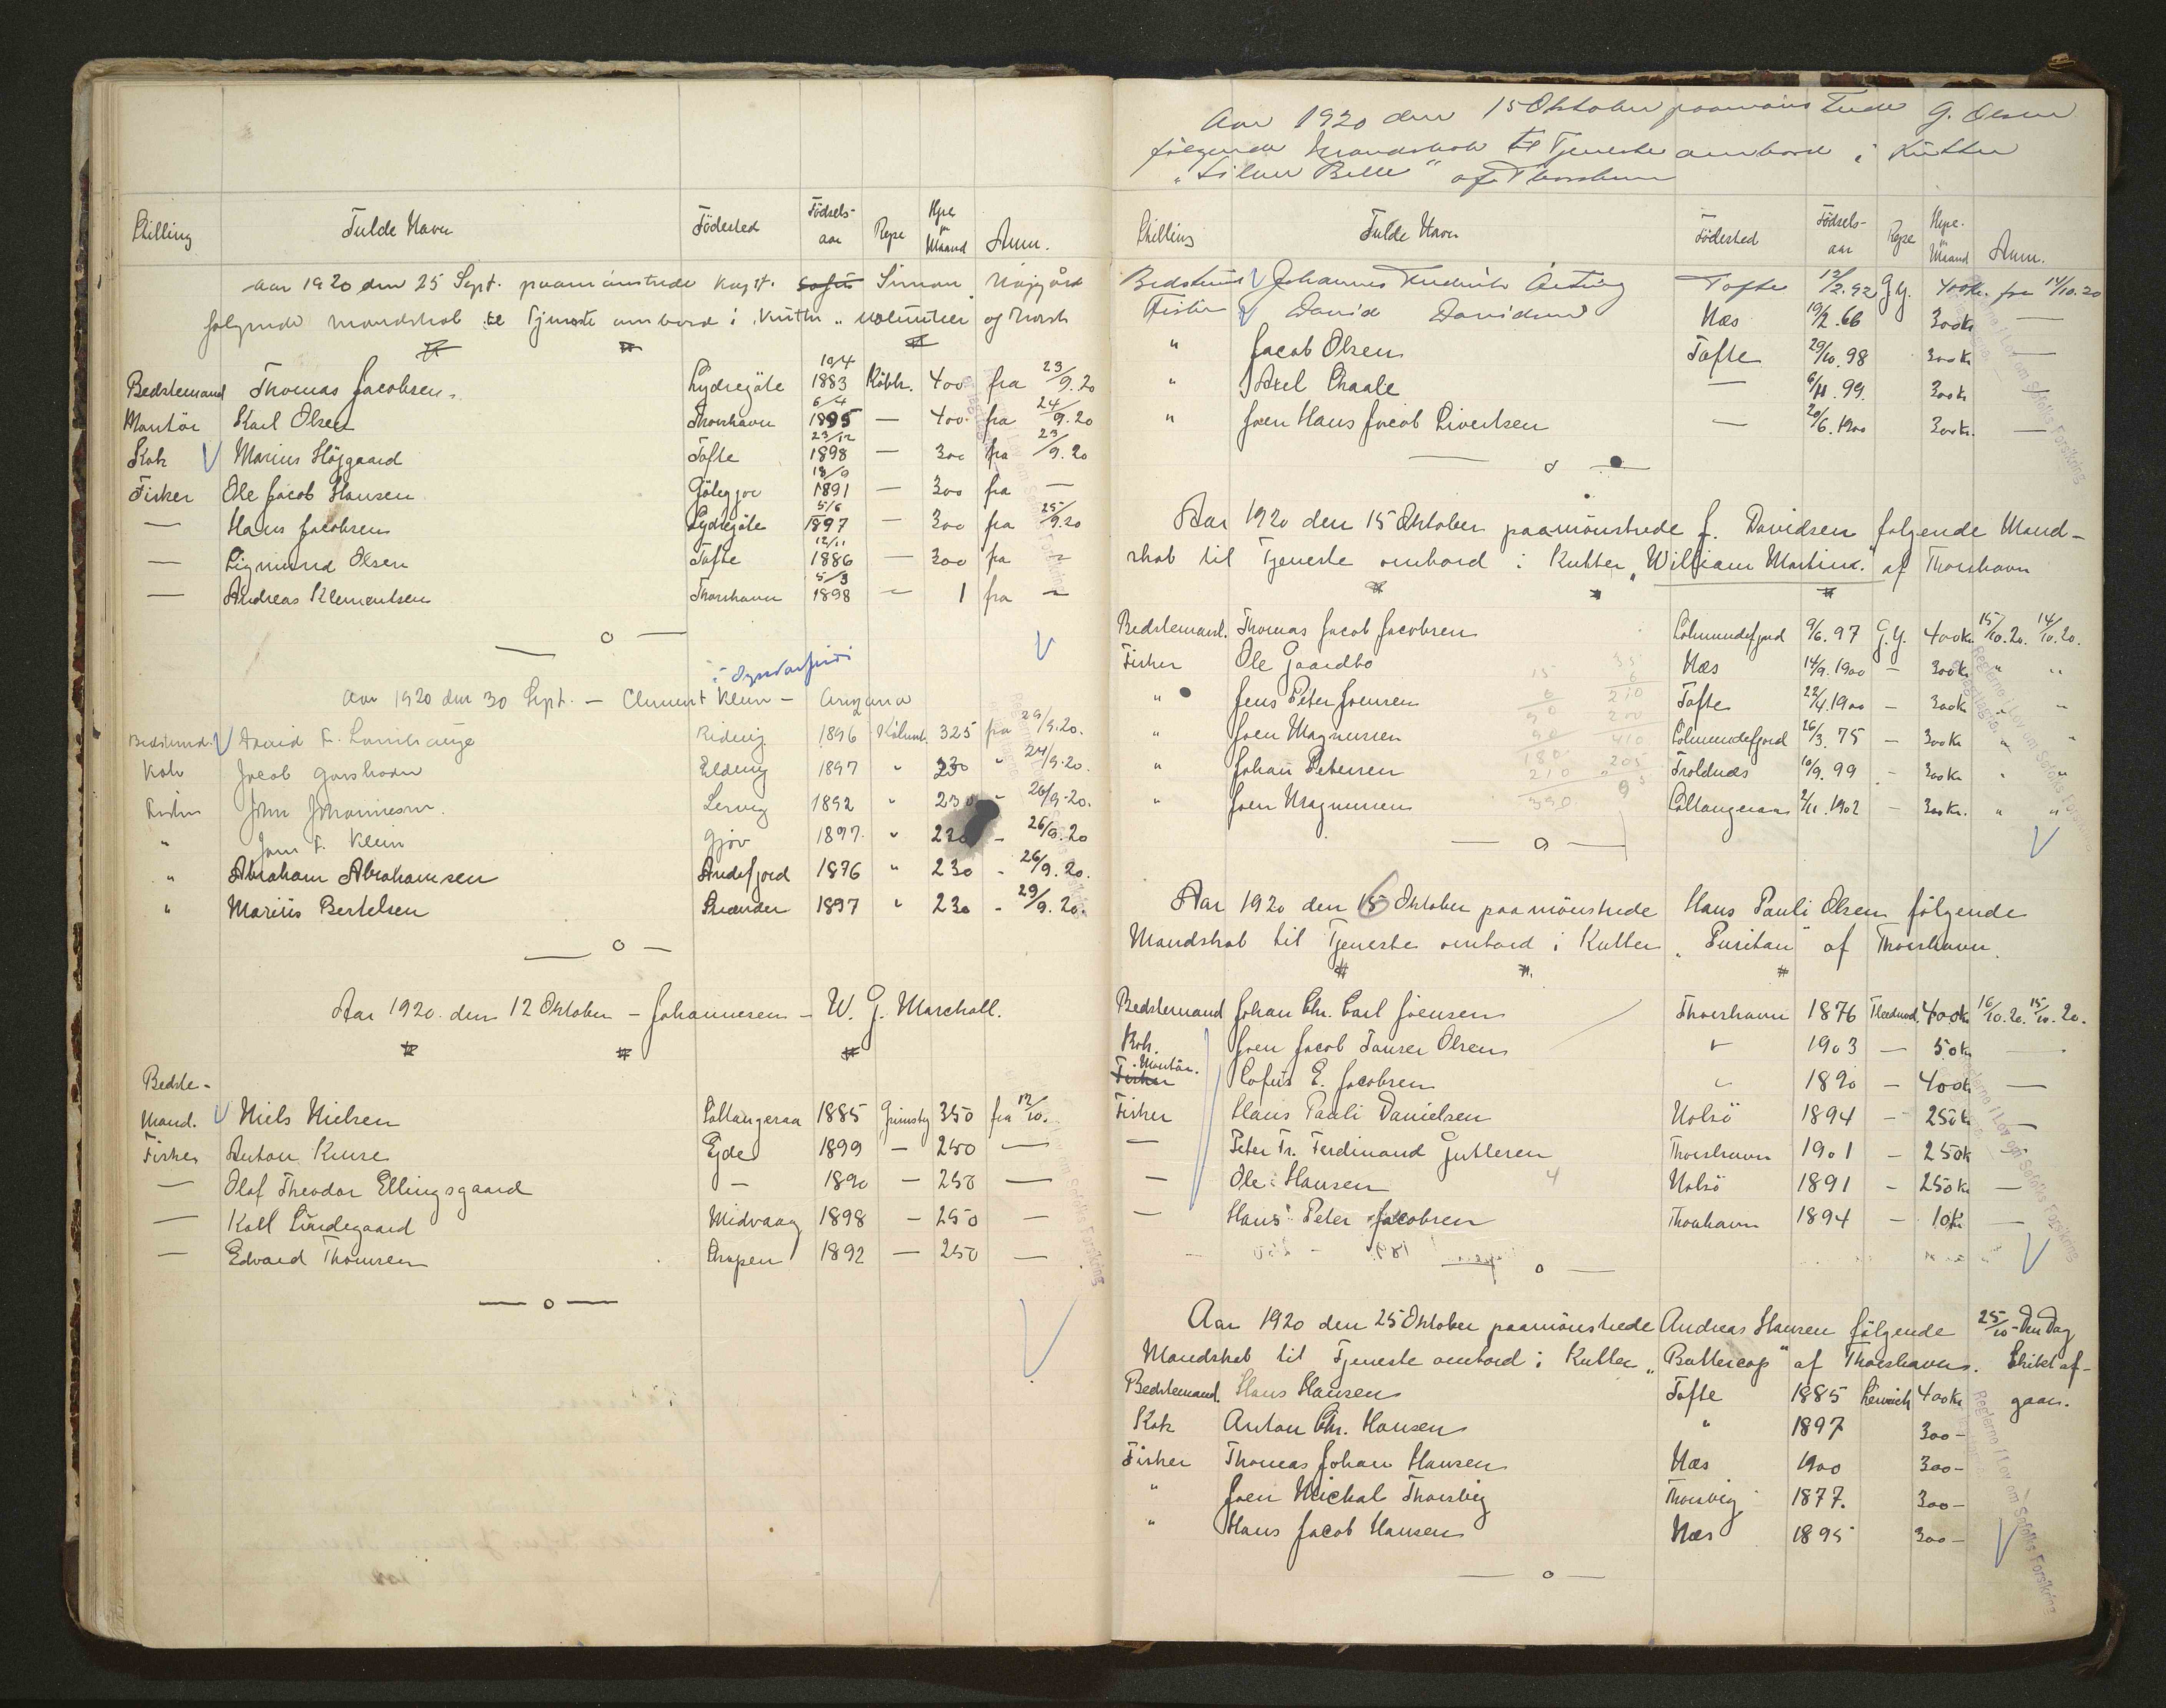 Stilling Fulde Navn Födested Födsels-aar Rejse Hyre pr Maaned Anm.
Aar 1920 den 25 Sept. paamönstrede Kapt. Simon Höjgård
følgende mandskab til Tjeneste ombord i Kutter „Volunteer" af Thorsh
Bedstemand Thomas Jacobsen Sydregöte 19/4 1883 Köbh. 400 fra 23/9.20
Montör Karl Olsen Thorshavn 6/4 1895 — 400 fra 24/9.20
Kok Marius Höjgaard Tofte 23/12 1898 — 300 fra 23/9.20
Fisker Ole Jacob Hansen Götegjov 18/9 1891 — 300 fra —
— Hans Jacobsen Sydregöte 5/6 1897 — 300 fra 25/9.20
— Sigmund Olsen Tofte 12/11 1886 — 300 fra —
— Andreas Klementsen Thorshavn 5/3 1898 — 1 fra —
— o —
Aar 1920 den 30 Sept. — Clement Klein — Arizona
Bedstemd. David F. 1896 325 fra 29/9.20.
Kok Jacob Elding 1897 " 230 " 24/9.20.
Fisker John Johannesen. Lervig 1892 " 230 - 26/9.20.
" Joen F. Klein Gjov 1897 " 230 - 26/9.20
" Abraham Abrahamsen Andefjord 1876 " 230 - 26/9.20.
" Marius Bertelsen Strænder 1897 " 230 - 29/9.20.
— o —
Aar 1920 den 12 Oktober — Johannesen — W. G. Marshall.
Bedste-
Mand. Niels Nielsen Saltangeraa 1885 Grimsby 350 fra 12/10.
Fisker Anton Kruse Ejde 1899 — 250 —
— Olaf Theodor Ellingsgaard — 1890 — 250 —
— Kall Lindegaard Midvaag 1898 — 250 —
— Edvard Thomsen Skopen 1892 — 250 —
— o —
Aar 1920 den 15 Oktober paamönstrede G. Olsen
følgende Mandskab til Tjeneste ombord i Kutter
„Silver Belle" af Thorshavn
Stilling Fulde Navn Födested Födsels-aar Rejse Hyre pr Maaned Anm.
Bedstemd Johannes Fredrik Tofte 12/2.92 G.Y. 400k. fra 14/10.20
Fisker David Davidsen Næs 19/2.66 300k —
" Jacob Olsen Tofte 29/10.98 300k —
" Axel Skaale — 6/11.99. 300k —
" Joen Hans Jacob Sivertsen — 20/6.1900 300k. —
— o —
Aar 1920 den 15 Oktober paamönstrede J. Davidsen følgende Mand-
skab til Tjeneste ombord i Kutter „William Martin." af Thorshavn
Bedstemand. Thomas Jacob Jacobsen Solmundefjord 9/6.97 G.Y. 400k 15/10.20. 14/10.20.
Fisker Ole Gaardbo Næs 14/9.1900 — 300k " "
" Jens Peter Joensen Tofte 22/4.1900 — 300k " "
" Joen Magnussen Solmundefjord 26/3.75 — 300k " "
" Johan Petersen Troldnæs 10/9.99 — 300k " "
" Joen Magnussen Saltangeraa 2/11.1902 — 300k. " "
— o —
Aar 1920 den 16 Oktober paamönstrede Hans Pauli Olsen følgende
Mandskab til Tjeneste ombord i Kutter „Puritan" af Thorshavn.
Bedstemand Johan Chr. Carl Joensen Thorshavn 1876 Fleedwod. 400k 16/10.20. 15/10.20.
Kok. Joen Jacob Olsen " 1903 — 50k —
Fisker Montör. Sofus E. Jacobsen " 1890 — 400k —
Fisker Hans Pauli Danielsen Nolsö 1894 — 250k —
— Peter Fr. Ferdinand Gutlesen Thorshavn 1901 — 250k —
— Ole Hansen Nolsö 1891 — 250k —
— Hans Peter Jacobsen Thorshavn 1894 — 10k —
— o —
Aar 1920 den 25 Oktober paamönstrede Andreas Hansen følgende 25/10 - Den Dag
Mandskab til Tjeneste ombord i Kutter „Buttercup" af Thorshavn. Skibet af-
Bedstemand. Hans Hansen Tofte 1885 Lerwich 400k gaar.
Kok Anton Chr. Hansen " 1897 300 —
Fisker Thomas Johan Hansen Næs 1900 300 —
" Joen Michal Thorsvig Thorsvig 1877. 300 —
" Hans Jacob Hansen Næs 1895 300 —
— o —